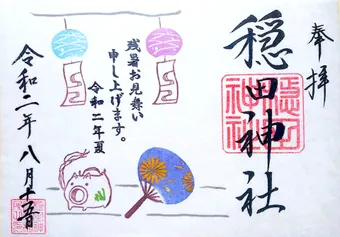 奉拝
穏田神社
残暑お見舞い
申し上げます。
令和二年夏
令和二年八月十五日